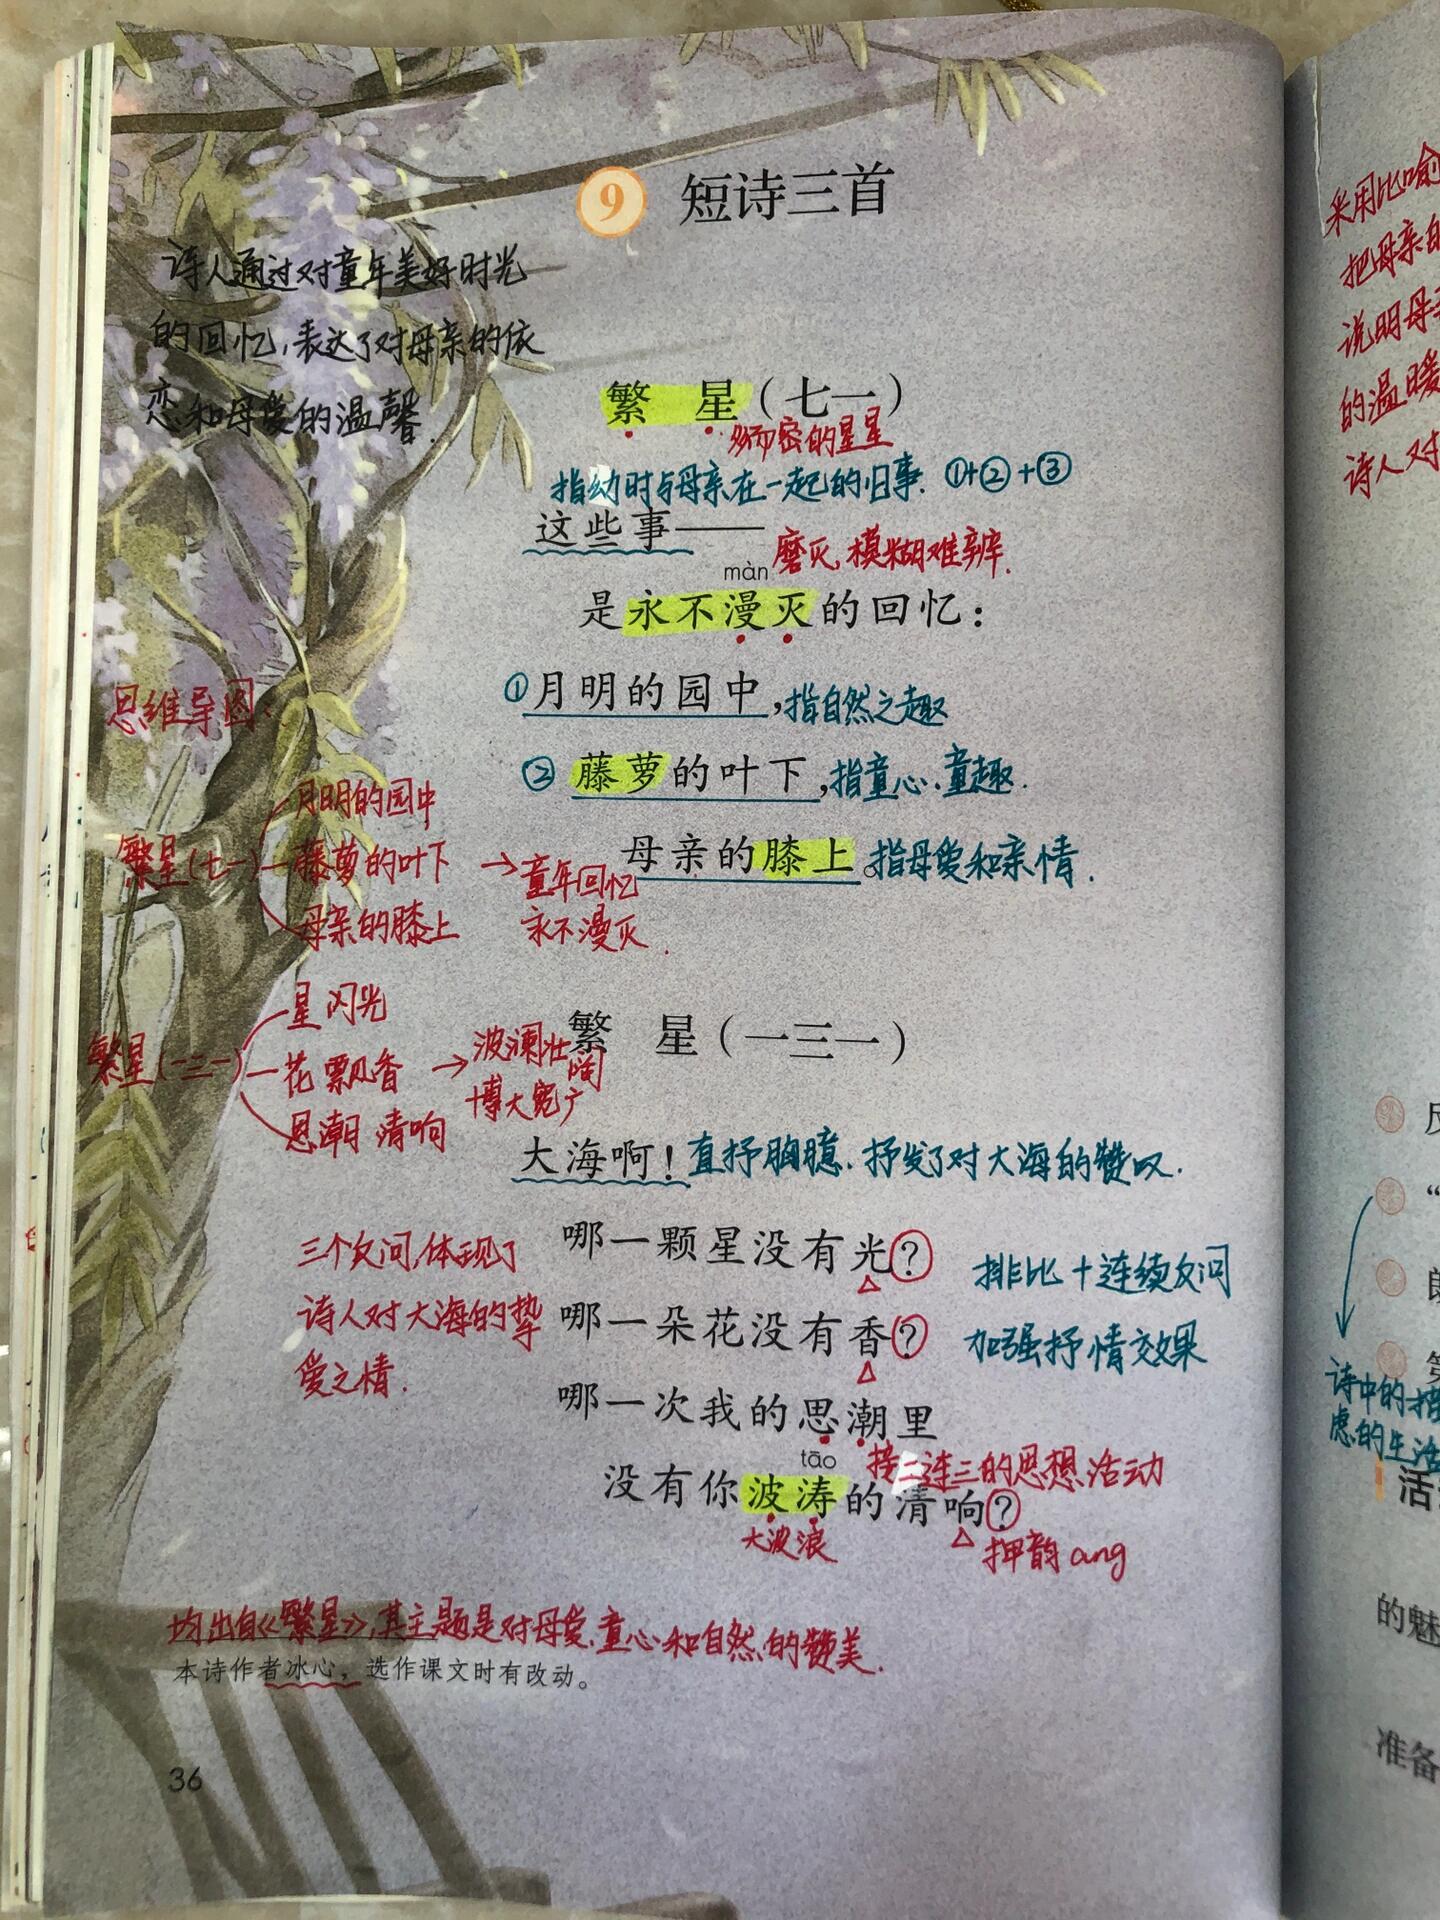 9 短诗三首
诗人通过对童年美好时光
的回忆,表达了对母亲的依
恋和母爱的温馨.
繁 星（七一）
稠密的星星
指幼时与母亲在一起的旧事. ①+②+③
这些事——
磨灭,模糊难辨.
màn
是永不漫灭的回忆：
①月明的园中，指自然之趣
②藤萝的叶下，指童心.童趣.
母亲的膝上。指母爱和亲情.
思维导图:
月明的园中
繁星(七一) 藤萝的叶下 → 童年回忆
母亲的膝上 永不漫灭.
繁 星（一三一）
星闪光
繁星(一三一) 花飘香 → 波澜壮阔
思潮清响 博大宽广
大海啊！直抒胸臆.抒发了对大海的赞叹.
哪一颗星没有光？
哪一朵花没有香？
哪一次我的思潮里
tāo
没有你波涛的清响？
三个反问,体现了
诗人对大海的挚
爱之情.
排比+连续反问
加强抒情效果
接二连三的思想活动
大波浪
押韵 ang
均出自《繁星》,其主题是对母爱.童心和自然的赞美.
本诗作者冰心，选作课文时有改动。
36
采用比喻
把母亲的
说明母亲
的温暖
诗人对
“
诗中的
虑的生活
活
的魅
准备